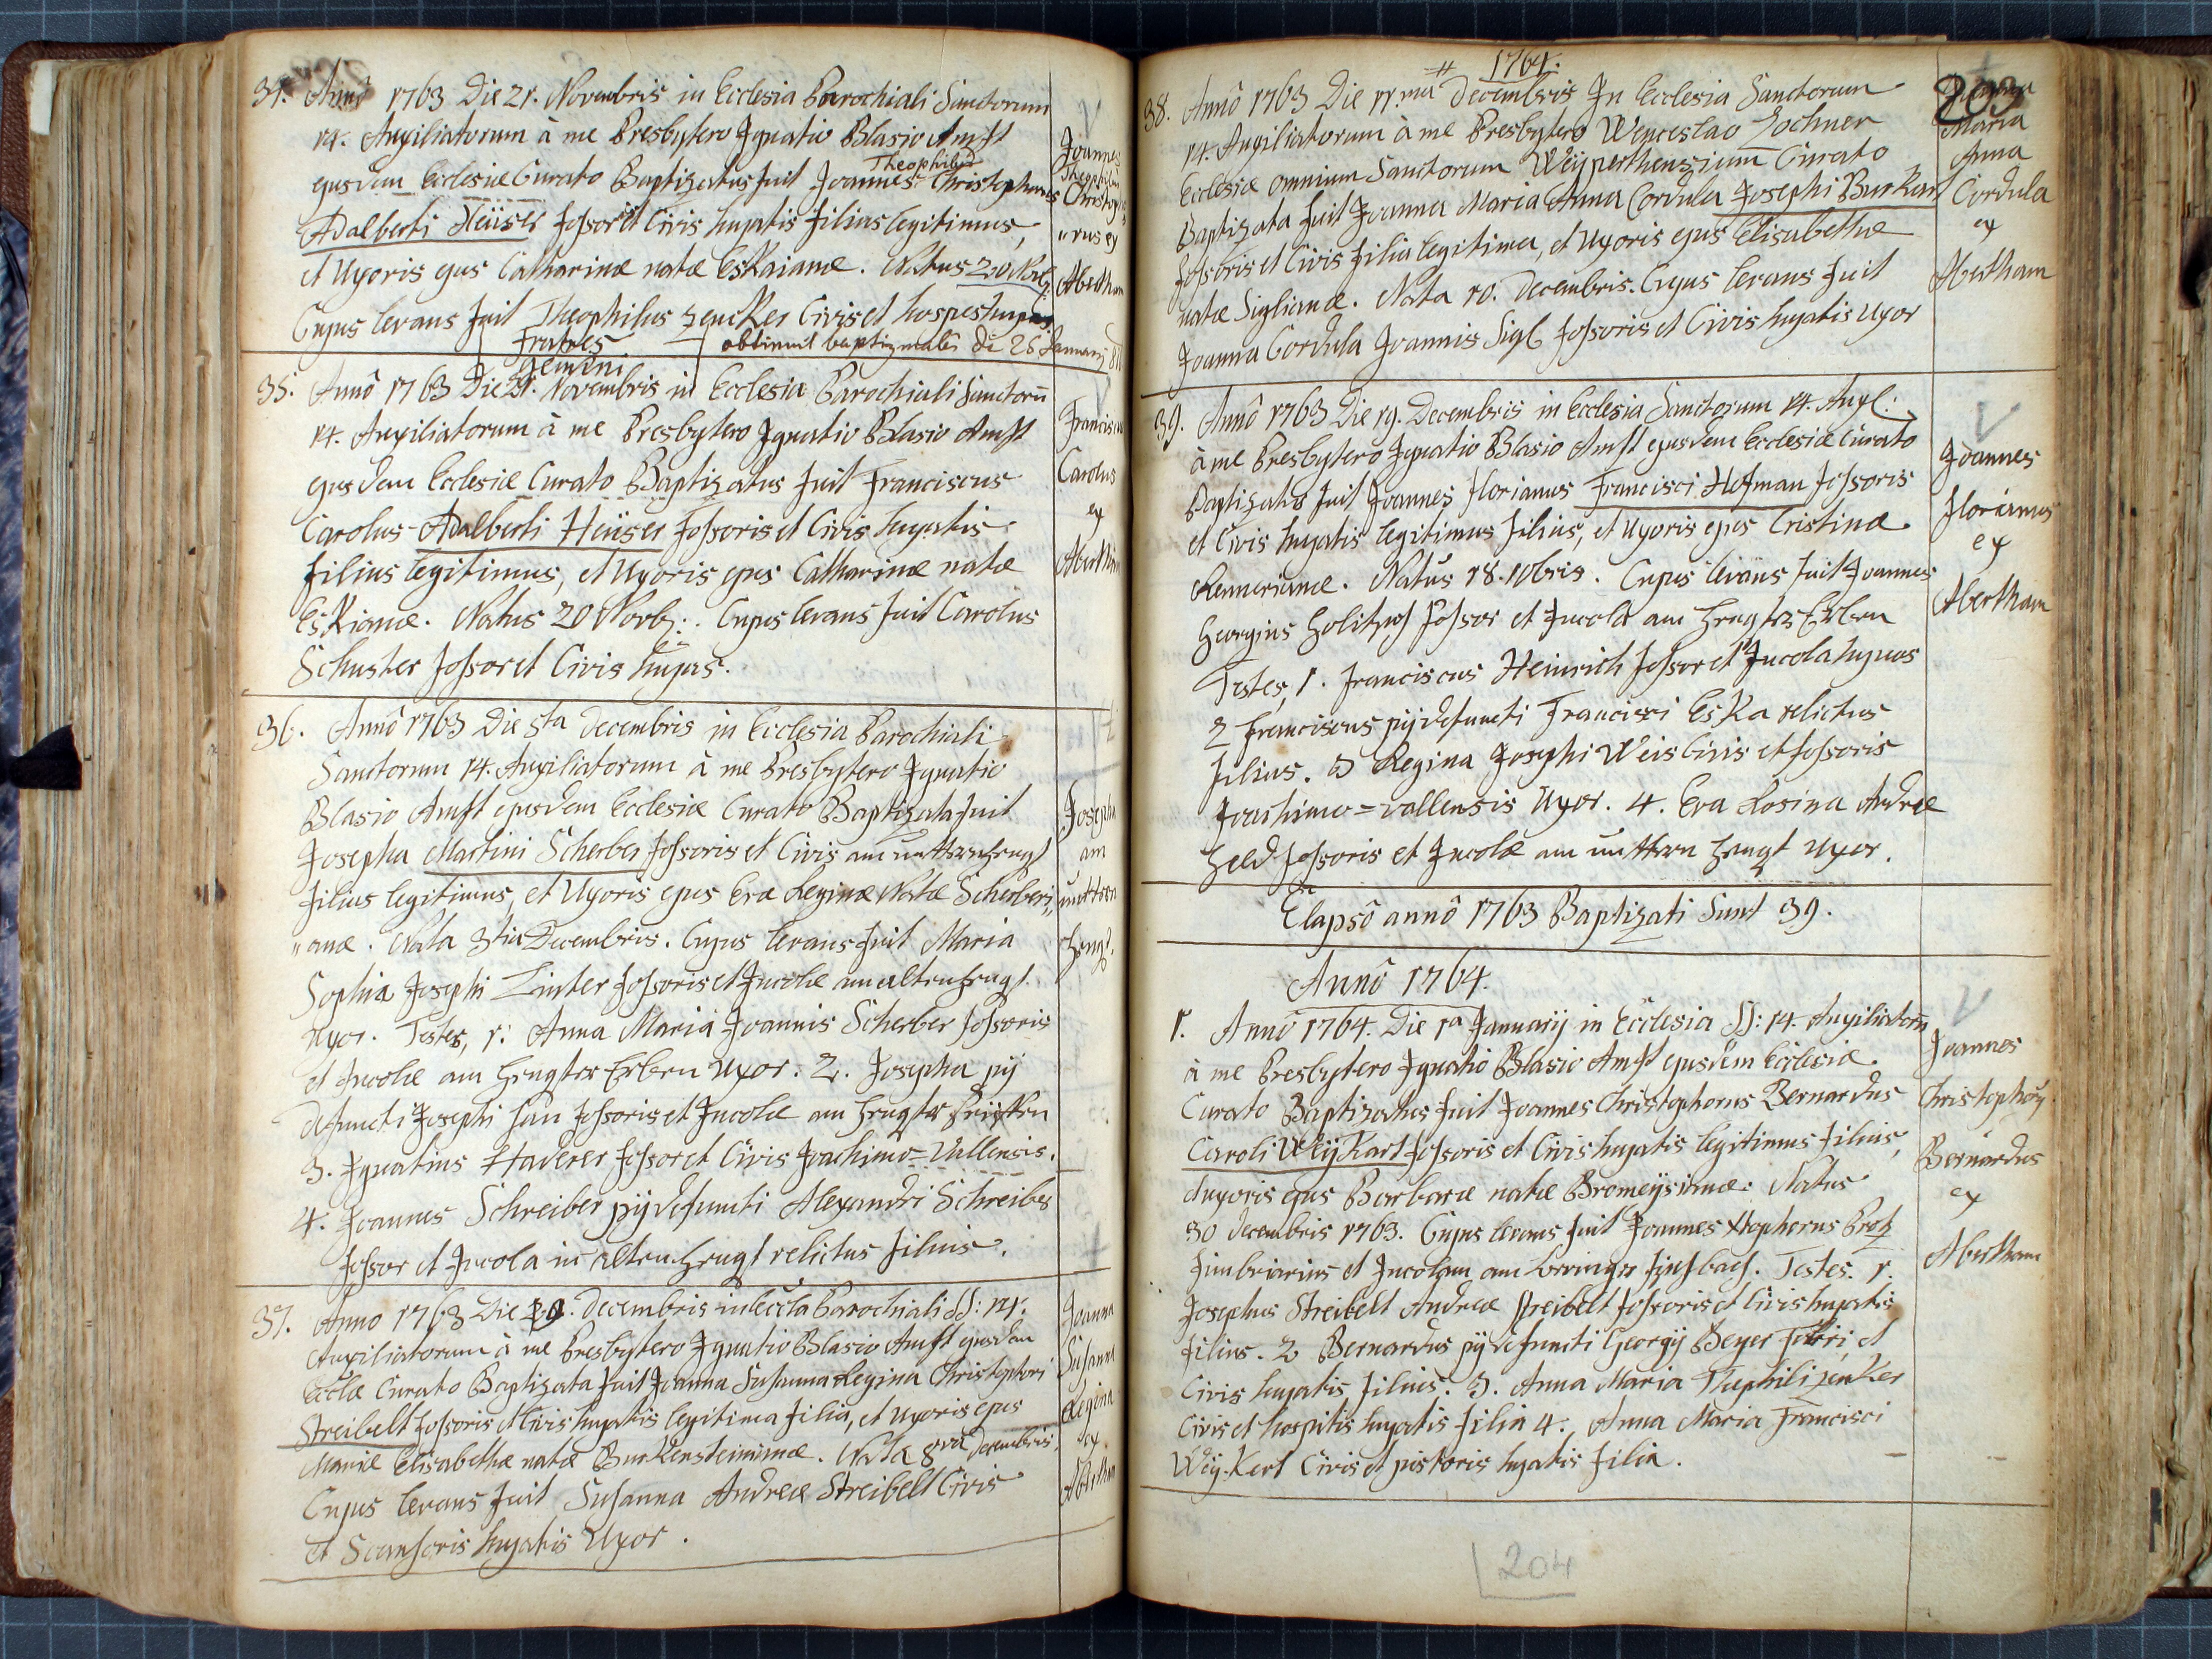 34. Annô 1763 Die 21. Novembris in Ecclesia Parochiali Sanctorum
14. Auxiliatorum à me Presbytero Ignatio Blasio Amst
ejusdem Ecclesiæ Curato Baptizatus fuit Joannes Theophilus Christophorus
Adalberti Heüser fossoris et Civis hujatis filius legitimus,
et Uxoris ejus Catharinæ natæ EsKaianæ. Natus 20 Novb:
Cujus levans fuit Theophilus zencker Civis et hospes hujus.
Fratres
gemini
obtinuit baptizmales di 26 Januarij
Joannes
Theophilus
Christoph
orus ex
Abertham
35. Annô 1763 Die 21. Novembris in Ecclesia Parochiali Sanctorū
14. Auxiliatorum à me Presbytero Ignatio Blasio Amst
ejusdem Ecclesiæ Curato Baptizatus fuit Franciscus
Carolus Adalberti Heüser Fossoris et Civis hujatis
filius legitimus, et Uxoris ejus Catharinæ natæ
EsKianæ. Natus 20 Novb:. Cujus levans fuit Carolus
Schuster fossor et Civis hujus.
Franciscus
Carolus
ex
Abertham
36. Annô 1763 Die 5ta Decembris in Ecclesia Parochiali
Sanctorum 14. Auxiliatorum à me Presbytero Ignatio
Blasio Amst ejusdem Ecclesiæ Curato Baptizata fuit
Josepha Martini Scherber fossoris et Civis am unttern hengst
filius legitimus, et Uxoris ejus Eva Reginæ Natæ Scherberi„
„anæ. Nata 3tia Decembris. Cujus levans fuit Maria
Sophia Josephi Linter fossoris et Incolæ am alten hengst
Uxor. Testes, 1. Anna Maria Joannis Scherber fossoris
et Incolæ am hengster Erben Uxor. 2. Josepha pij
defuncti Josephi fossoris et Incolæ am hengster
3. Ignatius Haderer fossor et Civis Joachimo=Vallensis.
4. Joannes Schreiber pij defuncti Alexandri Schreiber
fossor et Incola in alten hengst relictus filius.
Josepha
am
unttern
hengst.
37. Anno 1763 Die 10. Decembris in Eccla Parochiali SS: 14.
Auxiliatorum à me Presbytero Ignatio Blasio Amst ejusdem
Ecclæ Curato Baptizata fuit Joanna Susanna Regina Christophori
Streibelt fossoris et Civis hujatis legitima filia, et Uxoris ejus
Mariæ Elisabethæ natæ BurKensteinianæ. Nata 8va Decembris,
Cujus levans fuit Susanna Andreæ Streibelt Civis
et Scansoris hujatis Uxor.
Joanna
Susanna
Regina
ex
Abertham
1764.
203
38. Annô 1763 Die 11.ma Decembris In Ecclesia Sanctorum
14. Auxiliatorum à me Presbytero Wenceslao Lochner
Ecclesiæ omnium Sanctorum Weÿperthensium Curato
Baptizata fuit Joanna Maria Anna Cordula Josephi BurKart
fossoris et Civis filia legitima, et Uxoris ejus Elisabethæ
natæ Siglianæ. Nata 10. Decembris. Cujus levans fuit
Joanna Cordula Joannis Sigl fossoris et Civis hujatis Uxor
Maria
Anna
Cordula
ex
Abertham
39. Annô 1763 Die 19. Decembris in Ecclesia Sanctorum 14. Auxl:
à me Presbytero Ignatio Blasio Amst ejusdem Ecclesiæ Curato
Baptizatus fuit Joannes florianus Francisci Hofman fossoris
et Civis hujatis legitimus filius, et Uxoris ejus Cristinæ
Rennerianæ. Natus 18. 10bris. Cujus levans fuit Joannes
Georgius fossor et Incola am hengster Erben
Testes, 1. Franciscus Heinrich fossor et Incola hujus
2 Franciscus pij defuncti Francisci EsKa relictus
filius. 3 Regina Josephi Weis Civis et fossoris
Joachimo=vallensis Uxor. 4. Eva Rosina Andreæ
Held fossoris et Incolæ am unttern hengst Uxor.
Joannes
florianus
ex
Abertham
Elapsô annô 1763 Baptizati Sunt 39.
Annô 1764.
1. Annô 1764. Die 1a Januarij in Ecclesia SS: 14. Auxiliatorū
à me Presbytero Ignatio Blasio Amst ejusdem Ecclesiæ
Curato Baptizatus fuit Joannes Christophorus Bernardus
Caroli WeÿKart fossoris et Civis hujatis legitimus filius,
et uxoris ejus Barbaræ natæ Bromeÿsianæ. Natus
30 Decembris 1763. Cujus levans fuit Joannes Xtophorus
fimbriarius et Incolam am. Testes. 1.
Josephus Streibelt Andreæ Streibelt fossoris et Civis hujatis
filius. 2 Bernardus pij defuncti Georgij Beyer Fabri, et
Civis hujatis filius. 3. Anna Maria Theophili zenKer
Civis et hospitis hujatis filia 4. Anna Maria Francisci
WeÿKert Civis et pistoris hujatis filia.
Joannes
Christophorg
Bernardus
ex
Abertham
204